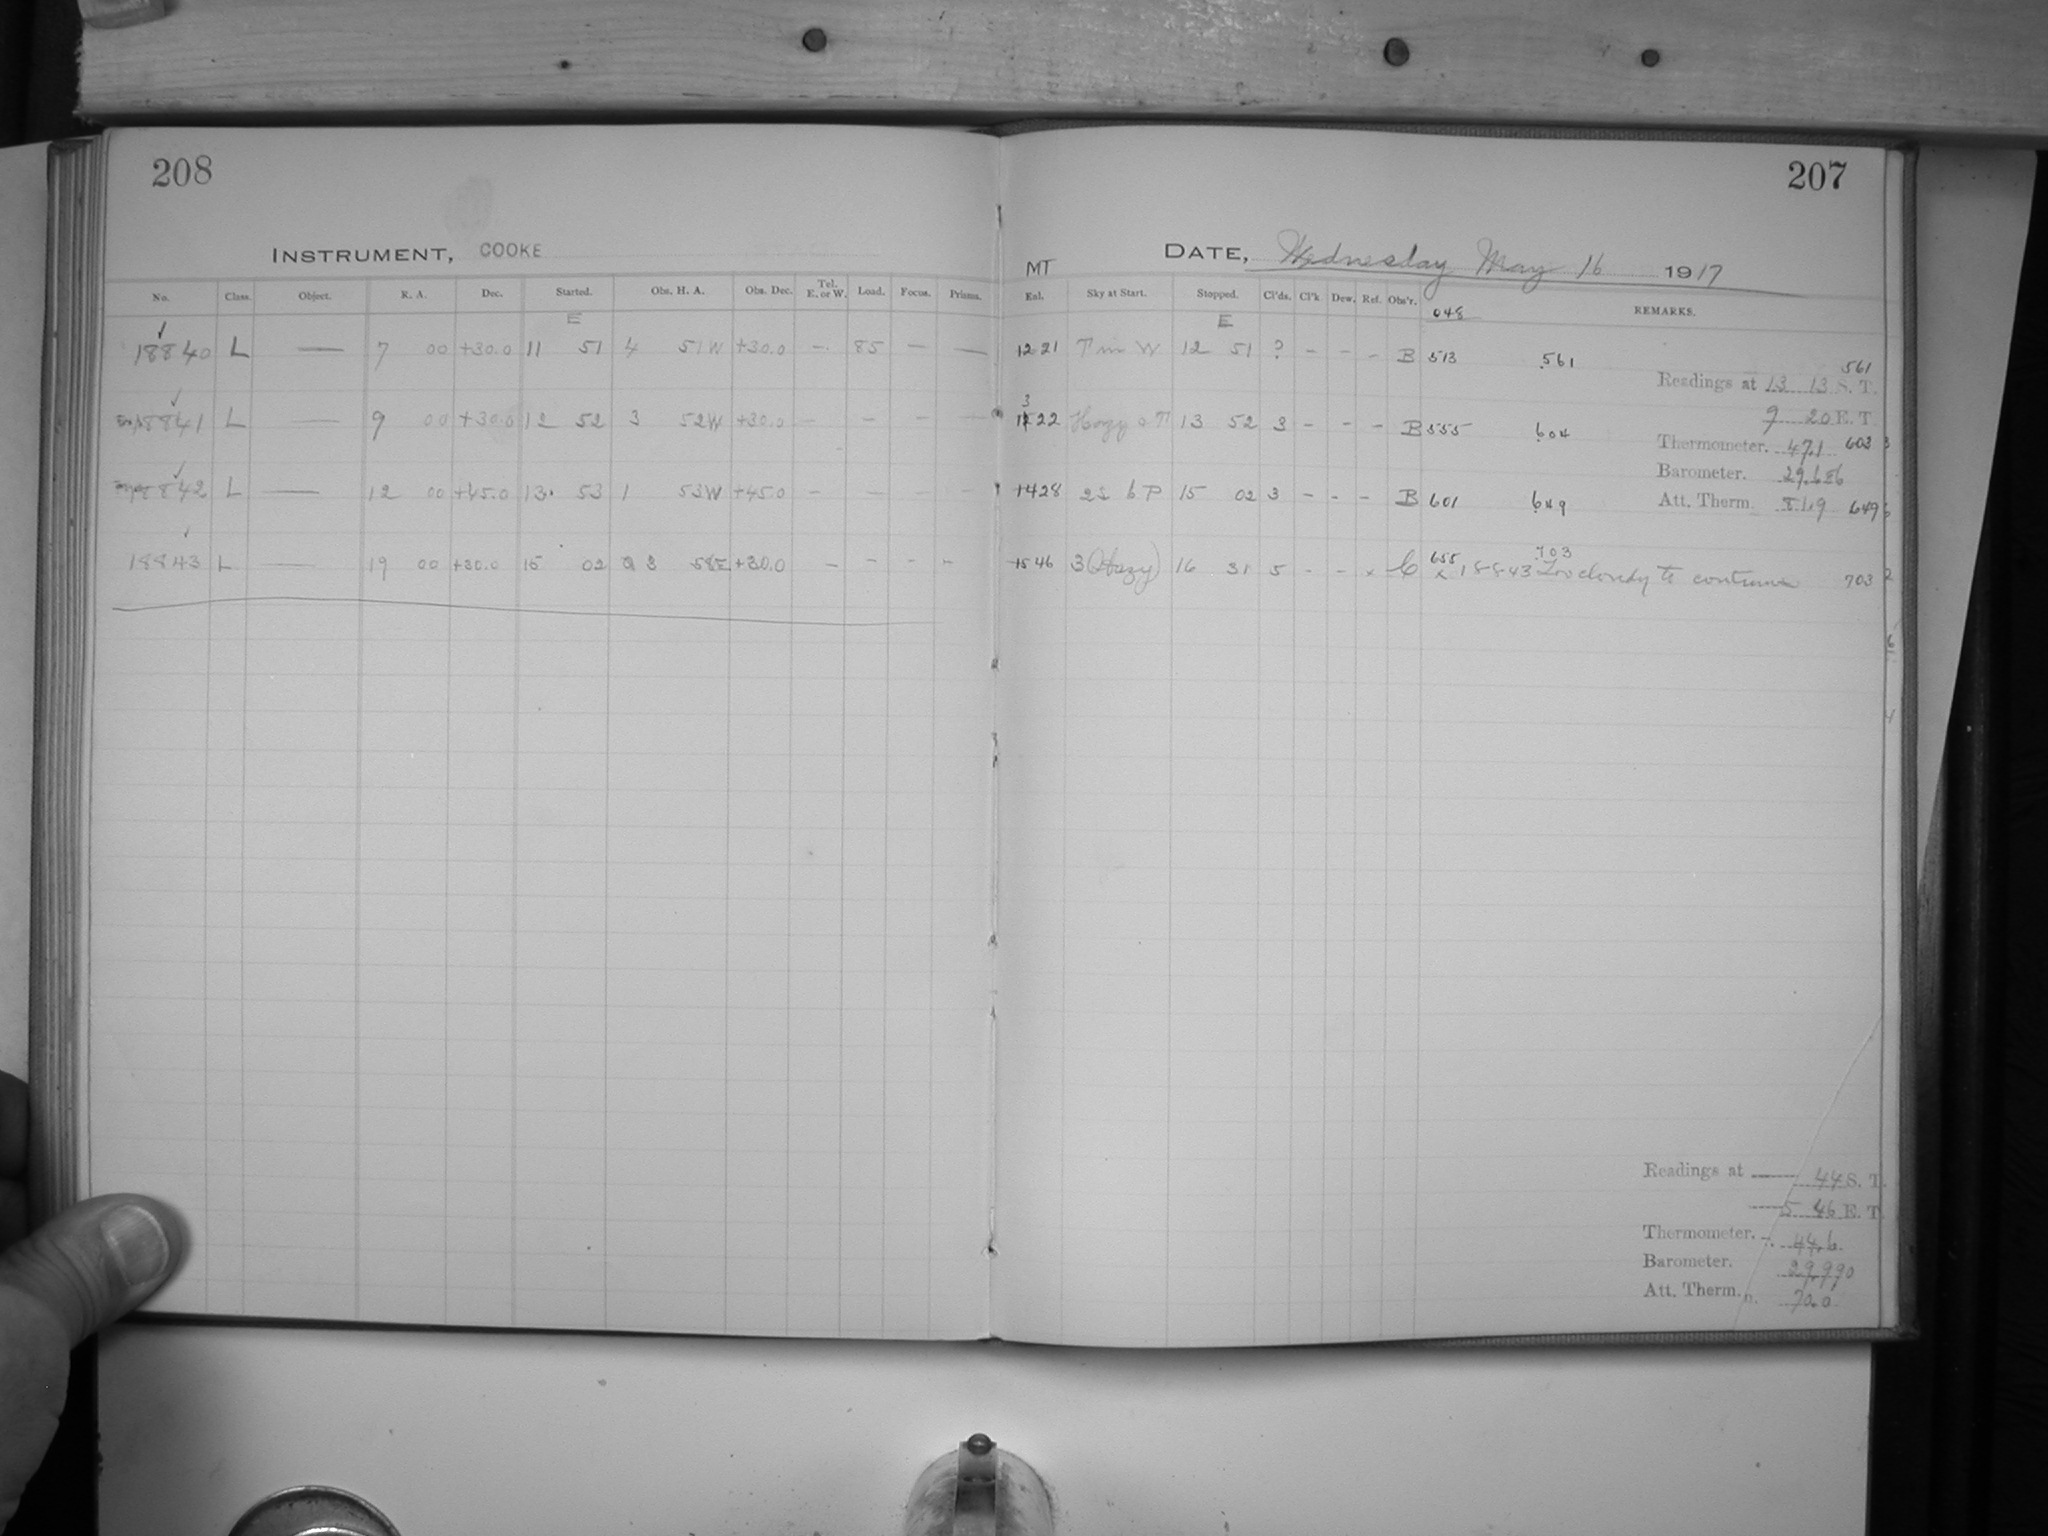 208
INSTRUMENT, COOKE
No. Class. Object. R. A. Dec. Started. Obs. H. A. Obs. Dec. Tel. E. or W. Load. Focus. Prisms.
E
18840 L — 7 00 +30.0 11 51 4 51W +30.0 — 85 — —
18841 L — 9 00 +30.0 12 52 3 52W +30.0 — — — —
18842 L — 12 00 +45.0 13 53 1 53W +45.0 — — — —
18843 L — 19 00 +30.0 15 02 3 58E +30.0 — — — —
207
DATE, Wednesday May 16 1917
MT
Exl. Sky at Start. Stopped. Cl'ds. Cl'k Dew. Ref. Obs'r. REMARKS.
048
E
1221 12 51 ? – – – B 513 561
561
Readings at 13 13 S. T.
3
22 Hazy 13 52 3 – – – B 555 604
9 20 E. T.
Thermometer. 47.1 603
Barometer. 29.686
1428 15 02 3 – – – B 601 649
Att. Therm. 649
1546 3 (Hazy) 16 31 5 – – x C 655 703
x 18843 Too cloudy to continue 703
Readings at 44 S. T.
5 46 E. T.
Thermometer. 44.6
Barometer. 29.990
Att. Therm. 70.0